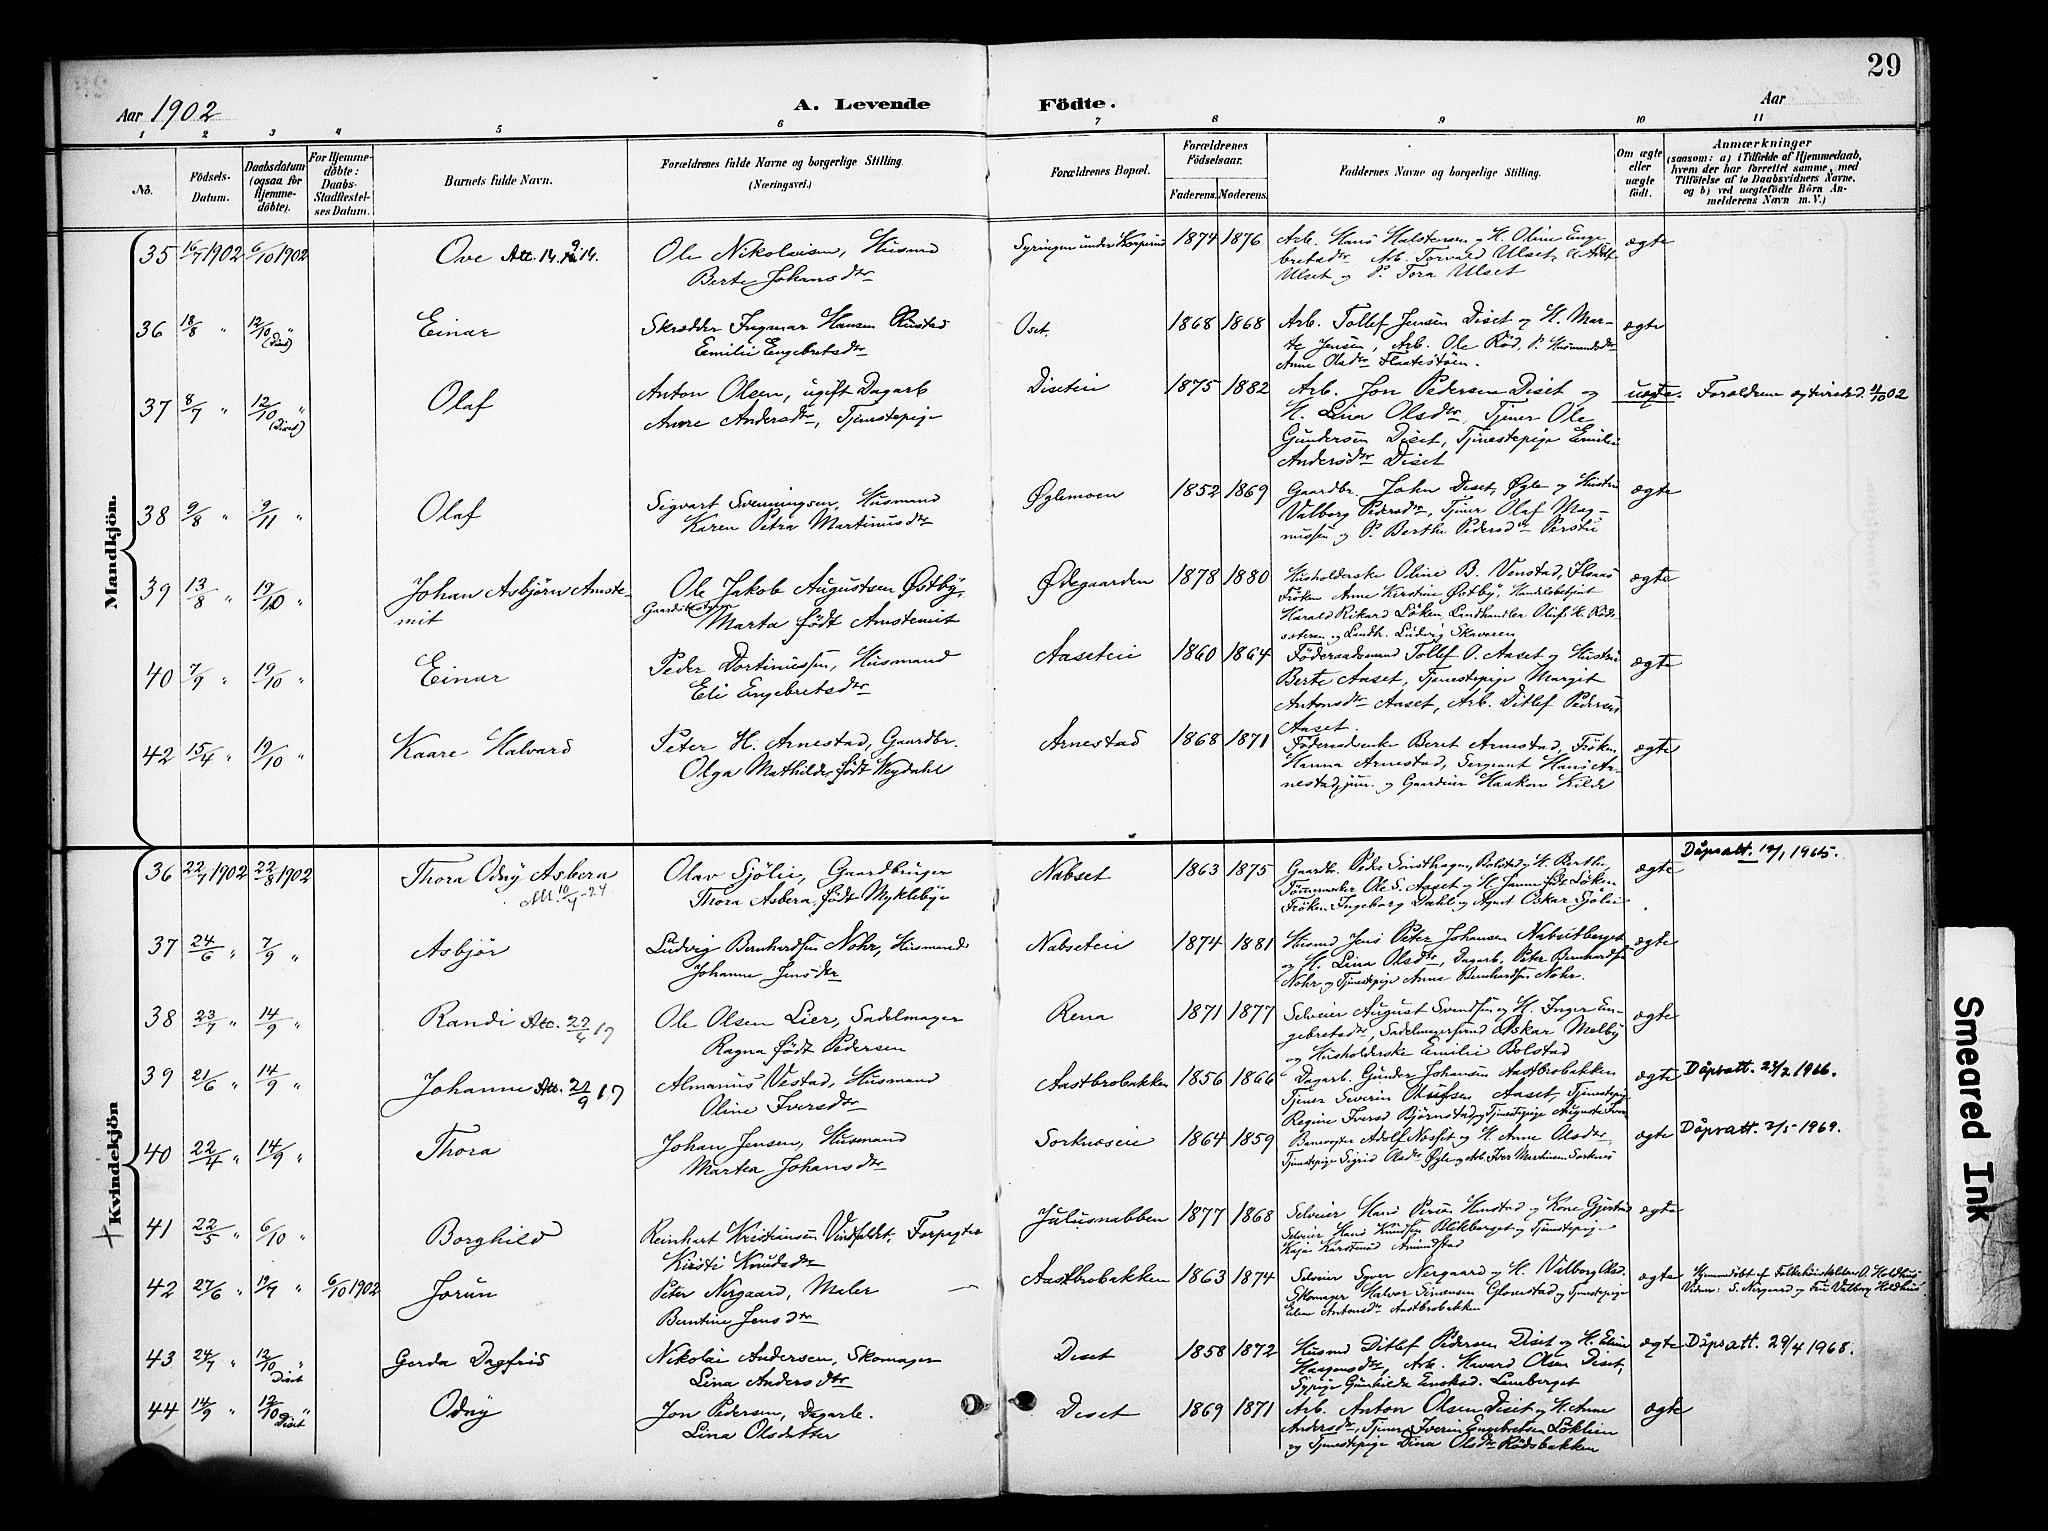 29
Aar 1902
A. Levende Födte.
Aar
1 2 3 4 5 6 7 8 9 10 11
No.
Födsels-Datum.
Daabsdatum (ogsaa for Hjemme-döbte).
For Hjemme-döbte: Daabs-Stadfæstel-ses Datum.
Barnets fulde Navn.
Forældrenes fulde Navne og borgerlige Stilling. (Næringsvei.)
Forældrenes Bopæl.
Forældrenes Födselsaar.
Faderens. Moderens.
Faddernes Navne og borgerlige Stilling.
Om ægte eller uægte födt.
Anmærkninger
(saasom: a) i Tilfælde af Hjemmedaab, hvem der har forrettet samme, med Tilföielse af to Daabsvidners Navne, og b) ved uægtefödte Börn An-melderens Navn m. V.)
Mandkjön.
35 16/7 1902 6/10 1902 Ove Att. 14. 14.
Ole Nikolaisen, Husmd
Berte Johansdtr
1874 1876
Arb. Hans Halstensen og H. Oline Enge-
bretsdtr, Arb. Torvald Ulset,
Ulset og P. Tora Ulset
ægte
36 18/8 " 12/10 " (Diset) Einar
Skrædder Ingmar Hansen Rustad
Emilie Engebretsdtr
Oset. 1868 1868
Arb. Tollef Jensen Diset og H. Mar-
te Jensen, Arb. Ole Röd, P. Husmandsdtr
Anne Olsdtr Flaatestöen.
ægte
37 8/7 " 12/10 " (Diset) Olaf
Anton Olsen, ugift Dagarb
Anne Andersdtr, Tjenestepige
Diseteie 1875 1882
Arb. Jon Pedersen Diset og
H. Lina Olsdtr, Tjener Ole
Gundersen Diset, Tjenestepige Emilie
Andersdtr Diset
uægte. Forældrene ægteviedes d. 4/10 02
38 9/8 " 9/11 " Olaf
Sigvart Svenningsen, Husmand
Karen Petra Martinusdtr
Øglemoen 1852 1869
Gaardbr. John Diset, Øgle og Hustru
Valborg Pedersdtr, Tjener Olaf Mag-
nussen og P. Berthe Pedersdtr Perstu
ægte
39 13/8 " 19/10 " Johan Asbjörn Amste-
mit
Ole Jakob Augustsen Østby,
Marta födt Amstemit
Ødegaarden 1878 1880
Husholderske Oline B. Venstad,
Fröken Anne Kirstine Østby, Handelsbetjent
Harald Rikard Löken, Landhandler Oluf H. Röds-
æteren og Landh. Ludvig Skaveren
ægte
40 7/9 " 19/10 " Einar
Peder Dortinussen, Husmand
Eli Engebretsdtr
Aaseteie 1860 1864
Föderaadsmand Tollef O. Aaset og Hustru
Berte Aaset, Tjenestepige Margit
Antonsdtr Aaset, Arb. Ditlef Pedersen
Aaset.
ægte
42 15/4 " 19/10 " Kaare Halvard
Peter H. Arnestad, Gaardbr.
Olga Mathilde födt Neydahl
Arnestad 1868 1871
Föderaadsenke Beret Arnestad, Fröken
Hanna Arnestad, Sergeant Hans Ar-
nestad, jun. og Gaardeier Haakon Kilde
ægte
Kvindekjön
36 22/7 1902 22/8 1902 Thora Odny Asbera
Att. 10/4-24
Olav Sjölie, Gaardbruger
Thora Asbera, födt Myklebye
Nabset 1863 1875
Gaardbr. Peder Sousthagen, Bolstad og H. Berthe,
Tömmermerker Ole S. Aaset og H. Janna födt Löken
Fröken Ingeborg Dahl og Agent Oskar Sjölie
ægte Dåpsatt. 12/1 1965.
37 24/6 " 7/9 " Asbjör
Ludvig Bernhardsen Nohr, Husmand
Johanne Jensdtr
Nabseteie 1874 1881
Husmd Jens Peter Johansen Nabsetberget
og H. Lina Olsdtr, Dagarb. Peter Bernhardsen
Nohr og Tjenestepige Anna Bernhardsen Nohr.
ægte
38 23/7 " 14/9 " Randi Att. 22/4 17
Ole Olsen Lier, Sadelmager
Ragna födt Pedersen
Rena 1871 1877
Selveier August Svendsen og H. Inger En-
gebretsdtr, Sadelmagersvend Oskar Melby
og Husholderske Emilie Bolstad
ægte
39 21/6 " 14/9 " Johanne Att. 21/9 17
Almanus Vestad, Husmand
Oline Iversdtr
Aastbrobakken 1856 1866
Dagarb. Gunder Johansen Aastbrobakken
Tjener Severin Olufsen Aaset, Tjenestepige
Regine Iversd Björnstad, og Tjenestepige Auguste
ægte Dåpsatt. 23/2 1966.
40 22/4 " 14/9 " Thora
Johan Jensen, Husmand
Martea Johansdtr
Sorknæseie 1864 1859
Banevogter Adolf Næsset og H. Anne Olsdtr,
Tjenestepige Sigrid Olsdtr Øgle og Arb. Iver Martinsen Sorknæs
ægte Dåpsatt. 2/5-1969.
41 22/5 " 6/10 " Borghild
Reinhart Kristiansen Vindfaldet, Forpagter
Kirsti Knudsdtr
Julusnabben 1877 1868
Selveier Hans
Selveier Hans Knudsen Blikberget og Tjenestepige
Kaja Karstensd
ægte
42 27/6 " 19/7 " 6/10 1902 Jorun
Peter Nergaard, Maler
Berntine Jensdtr
Aastbrobakken 1863 1874
Selveier Syver Nergaard og H. Valborg Olsd.
Skomager Halvor Simensen Glomstad og Tjenestepige
Eline Antonsdtr Aastbrobakken
ægte Hjemmedöbt af Folkehöiskolelærer O. Holdhus
Vidner: S. Nergaard og Fru Valborg Holdhus
43 24/7 " 12/10 " Diset Gerda Dagfrid
Nikolai Andersen, Skomager
Lina Andersdtr
Diset 1858 1872
Husmd Ditlef Pedersen Diset og H. Eline
Haagensdtr, Arb. Havard Olsen Diset,
Sypige Gunhilde
ægte Dåpsatt. 29/4 1968.
44 14/9 " 12/10 " Diset Odny
Jon Pedersen, Dagarb.
Lina Olsdatter
Diset 1869 1871
Arb. Anton Olsen Diset og H. Anne
Andersdtr, Tjener Iverin Engebretsen Löklien
og Tjenestepige Dina Olsdtr Rödsbakken
ægte
Smeared Ink